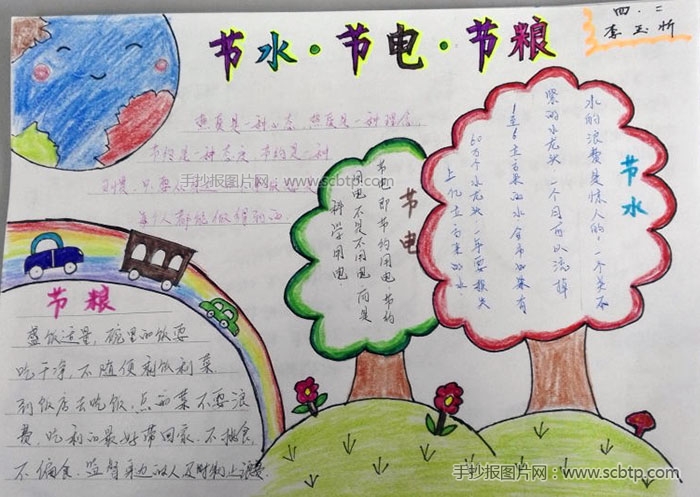 节水·节电·节粮
四.二
李玉昕
节约是一种态度,节约是一种
每个人都能做得到的.
手抄报图片网:www.scbtp.com
节水
水的浪费是惊人的,一个关不
紧的水龙头,一个月可以流掉
1至6立方米的水,全市如果有
60万个水龙头,一年要损失
上亿立方米的水.
节电
节电即节约用电,节约
用电不是不用电而是
科学用电
节粮
盛饭适量,碗里的饭要
吃干净,不随便剩饭剩菜
到饭店去吃饭,点的菜不要浪
费,吃剩的最好带回家,不挑食,
不偏食.监督身边的人及时制止浪费.
手抄报图片网:www.scbtp.com